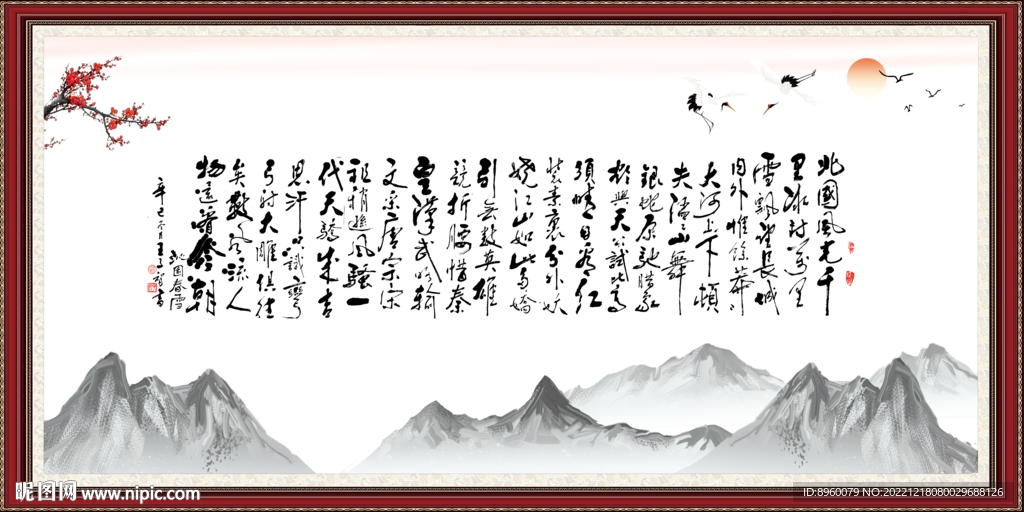 北國風光千
里冰封萬里
雪飄望長城
内外惟餘莽莽
大河上下頓
失滔滔山舞
銀蛇原馳臘象
欲與天公試比高
須晴日看紅
裝素裹分外妖
嬈江山如此多嬌
引無數英雄
競折腰惜秦
皇漢武略輸
文采唐宗宋
祖稍遜風騷一
代天驕成吉
思汗只識彎
弓射大雕俱往
矣數風流人
物還看今朝
沁園春雪
辛巳
昵图网 www.nipic.com
ID:8960079 NO:20221218080029688126